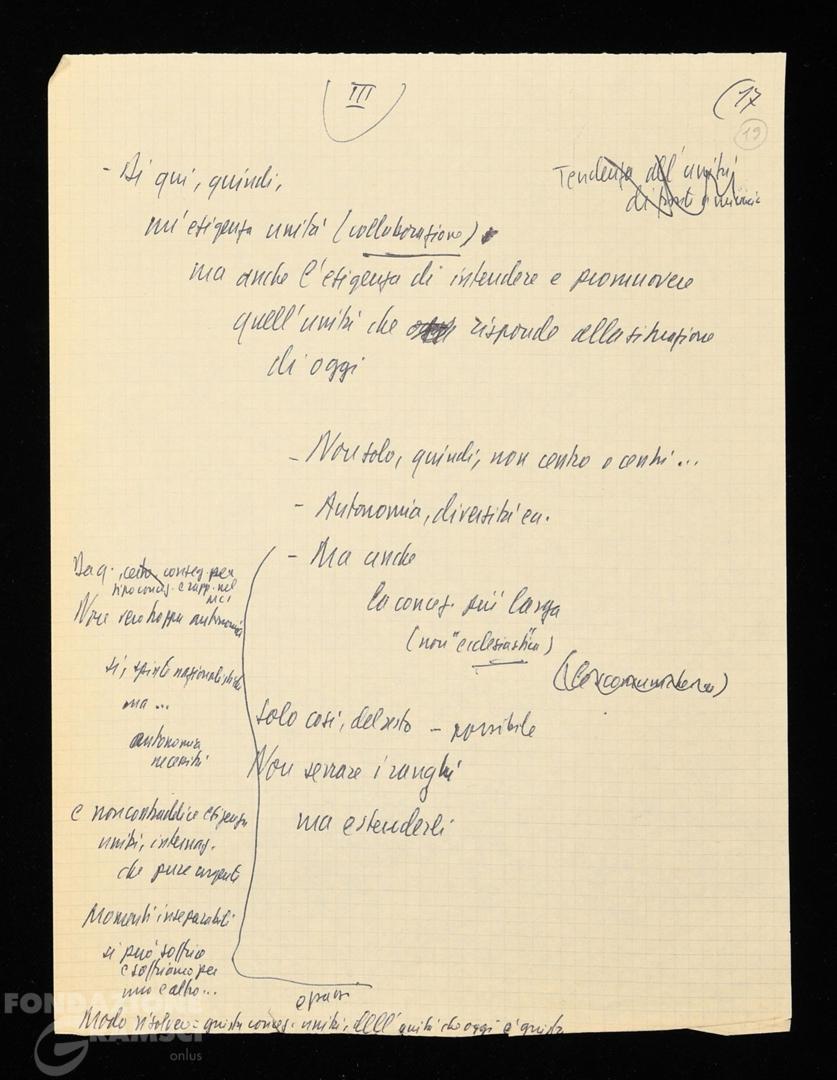 III
(17
19
Tendenza all'unità
di fronte a minaccia
- Di qui, quindi,
un'esigenza unità (collaborazione)
ma anche l'esigenza di intendere e promuovere
quell'unità che risponde alla situazione
di oggi
- Non solo, quindi, non centro o centri...
- Autonomia, diversità ecc.
- Ma anche
la concez. più larga
(non "ecclesiastica")
solo così, del resto - possibile
Non serrare i ranghi
ma estenderli
Da q. certo conseg. per
tipo concez. e rapp. nel
MCI
Non vero troppa autonomia
sì, spinte nazionalistiche
ma...
autonomia
necessità
e non contraddice esigenza
unità, internaz.
che pure urgente
Momenti inseparabili
si può soffrire
e soffriamo per
uno e altro...
Modo risolvere: giusta concez. unità, dell'unità che oggi è giusta
FONDAZIONE
GRAMSCI
onlus